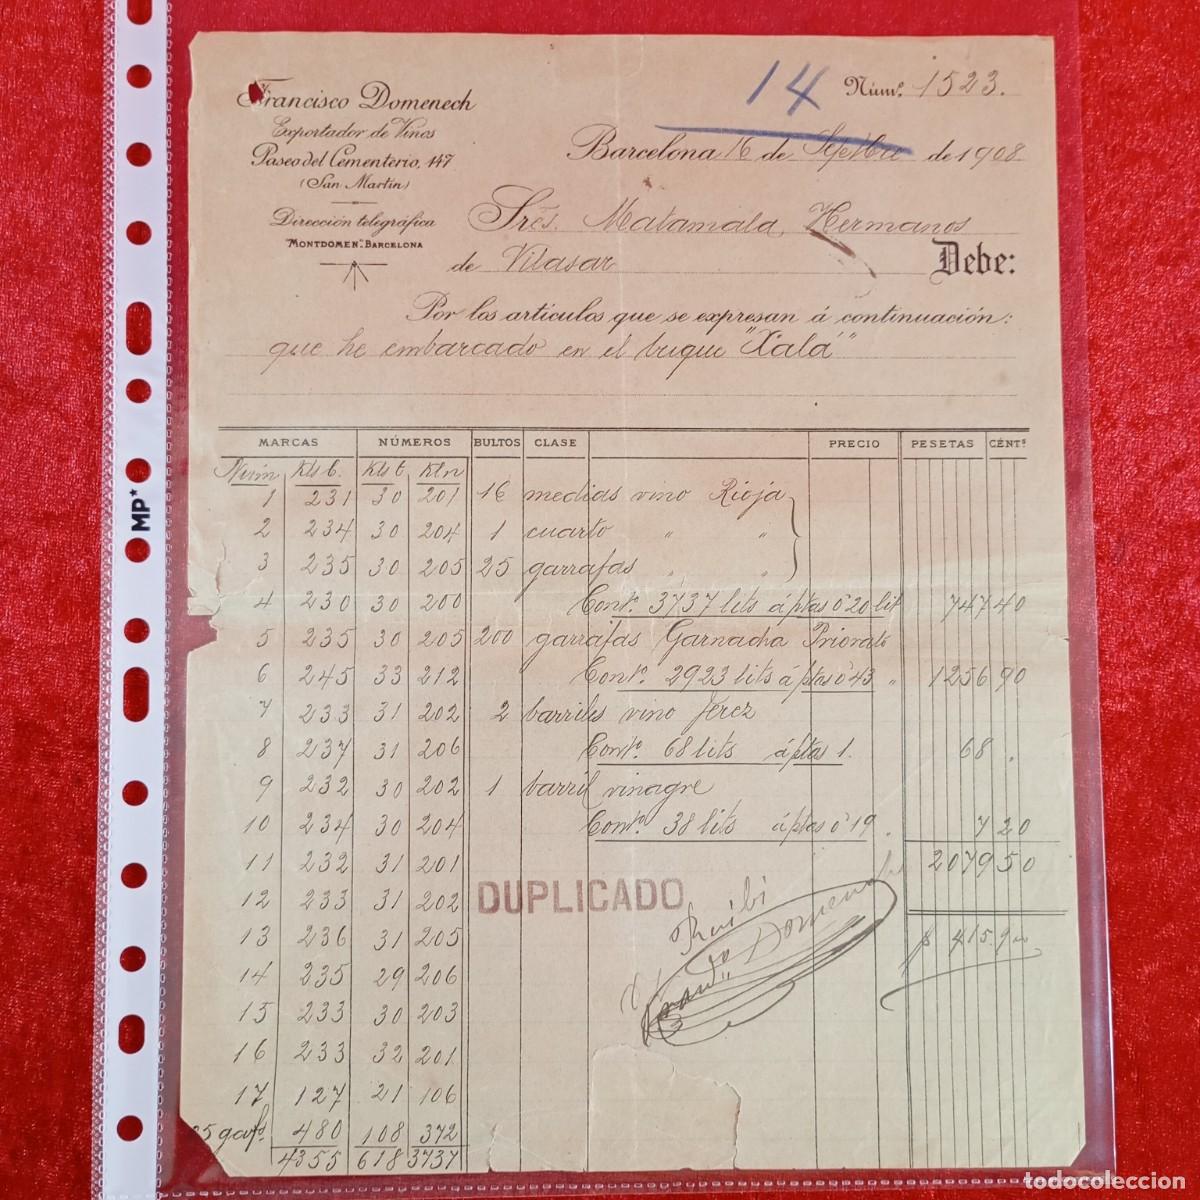 14
Núm.º 1523.
Francisco Domenech
Exportador de Vinos
Paseo del Cementerio, 147
(San Martín)
Dirección telegráfica
"MONTDOMEN"-BARCELONA
Barcelona 16 de Sepbre de 1908
Sres. Matamala Hermanos
de Vilasar
Debe:
Por los artículos que se expresan á continuación:
que he embarcado en el buque "Xalá"
MARCAS NÚMEROS BULTOS CLASE PRECIO PESETAS CÉNTS
Núm Kls b. Kls t Ktn
1 231 30 201 16 medias vino Rioja
2 234 30 204 1 cuarto " "
3 235 30 205 25 garrafas " "
4 230 30 200 Conto. 3737 lits á ptas 0'20 lit 747 40
5 235 30 205 200 garrafas Garnacha Priorato
6 245 33 212 Conto. 2923 lits á ptas 0'43 " 1256 90
7 233 31 202 2 barriles vino Jerez
8 237 31 206 Conto. 68 lits á ptas 1. 68 .
9 232 30 202 1 barril vinagre
10 234 30 204 Conto. 38 lits á ptas 0'19 . 7 20
11 232 31 201 2079 50
12 233 31 202
DUPLICADO
13 236 31 205 $ 415.90
Recibí
Domenech
14 235 29 206
15 233 30 203
16 233 32 201
17 127 21 106
25 gafs. 480 108 372
4355 618 3737
MP*
todocoleccion
todocoleccion.net